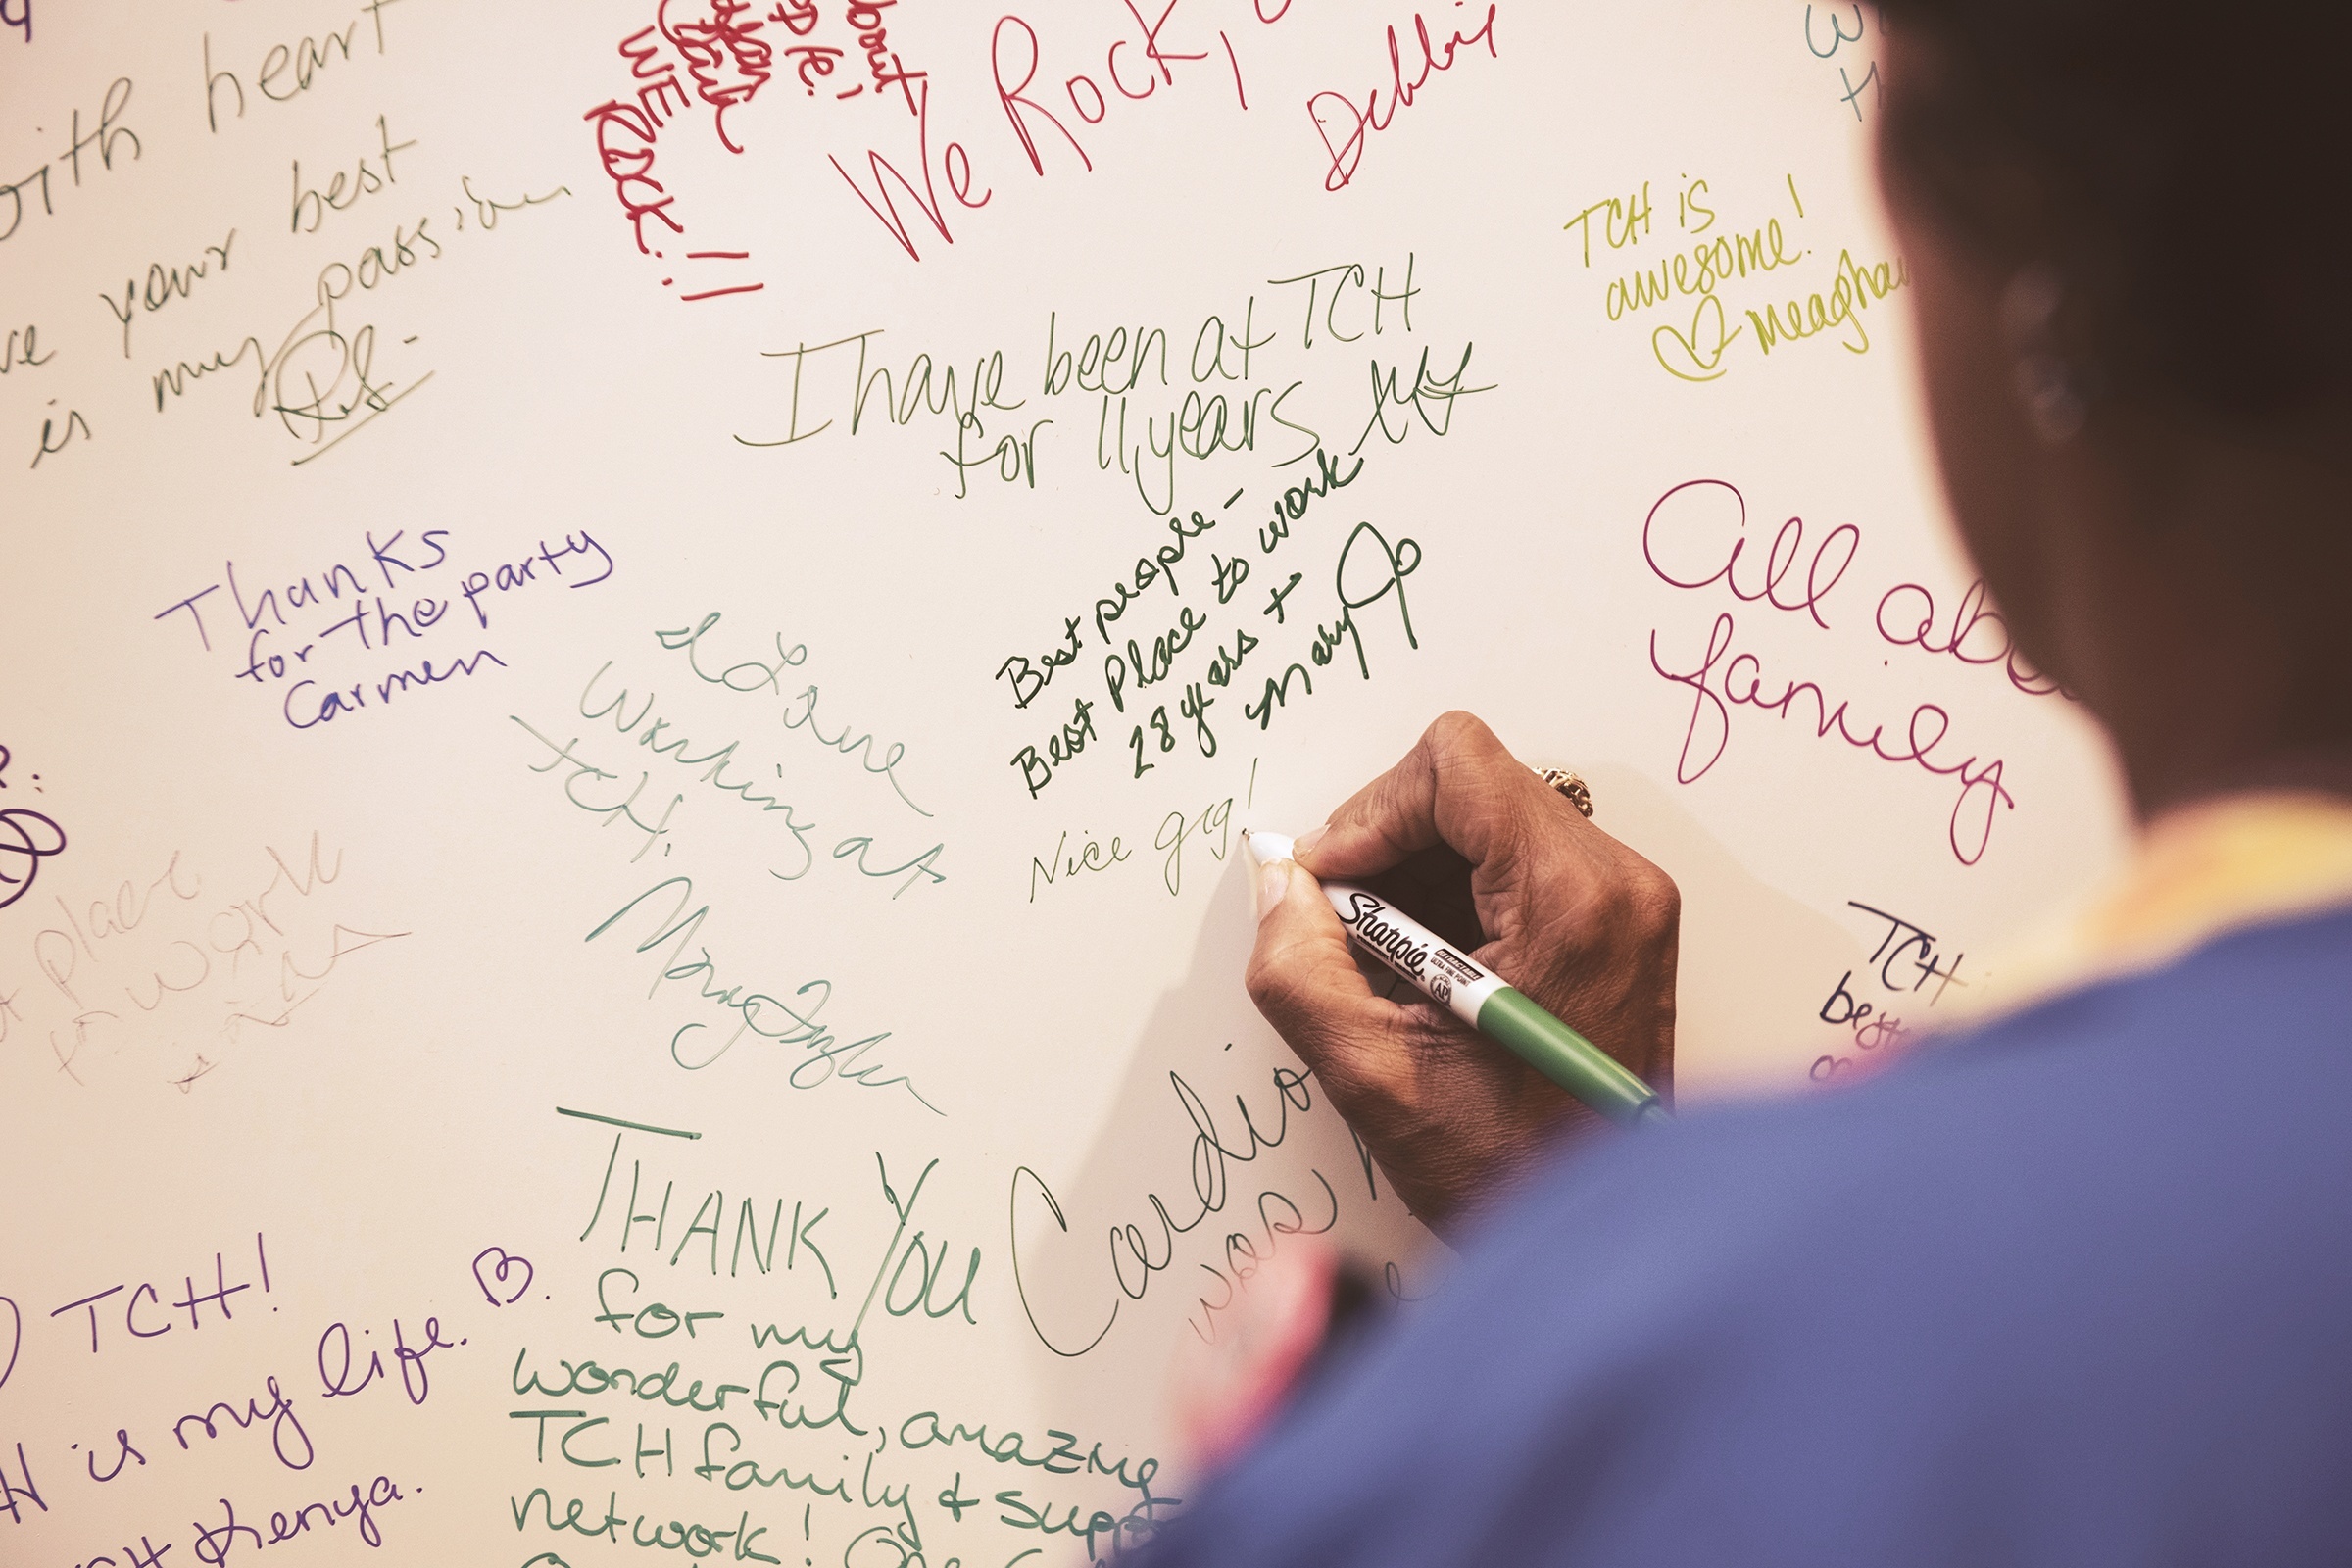 with heart
your best
is my passion
about
WE
ROCK!!
We Rock,
Debbie
TCH is
awesome!
Meaghan
I have been at TCH
for 11 years
Best people -
Best Place to work
28 years +
Mary Jo
Nice gig!
Thanks
for the party
Carmen
I Love
Working at
TCH!
All
family
place
work
Sharpie
RETRACTABLE
ULTRA FINE POINT
AP
TCH
best
Cardio
was
THANK YOU
for my
wonderful, amazing
TCH family &
network!
TCH!
B.
is my life.
Khenya.